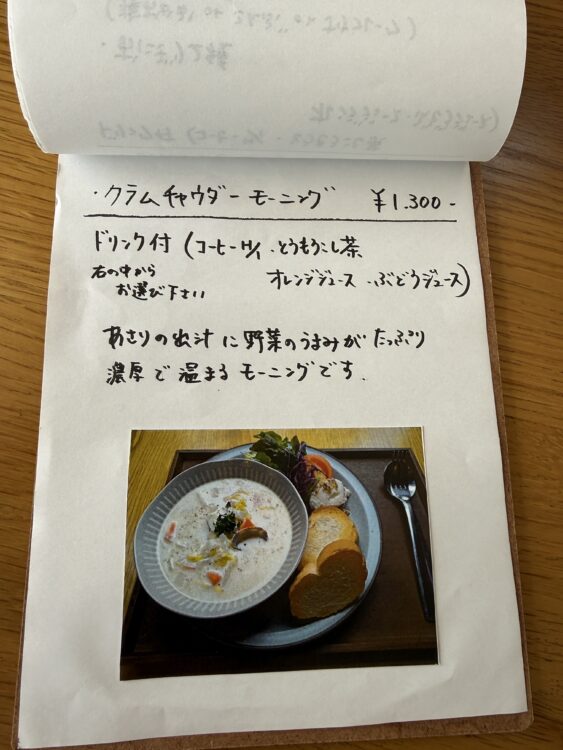 ・クラムチャウダーモーニング ￥1.300-
ドリンク付 (コーヒーH/I ・とうもろこし茶
右の中から オレンジジュース ・ぶどうジュース)
お選び下さい
あさりの出汁に野菜のうまみがたっぷり
濃厚で温まるモーニングです.